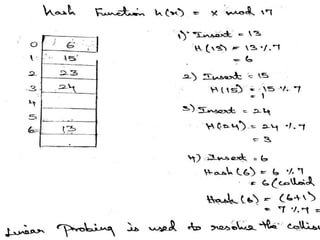 Hash Function h(x) = x mod 17
1) Insert = 13
H(13) = 13 % 7
= 6
2) Insert = 15
H(15) = 15 % 7
= 1
3) Insert = 24
H(24) = 24 % 7
= 3
4) Insert = 6
Hash(6) = 6 % 7
= 6 (colloid
Hash(6) = (6+1)
= 7 % 7 =
0 6
1 15
2 23
3 24
4
5
6 13
Linear Probing is used to resolve the collis